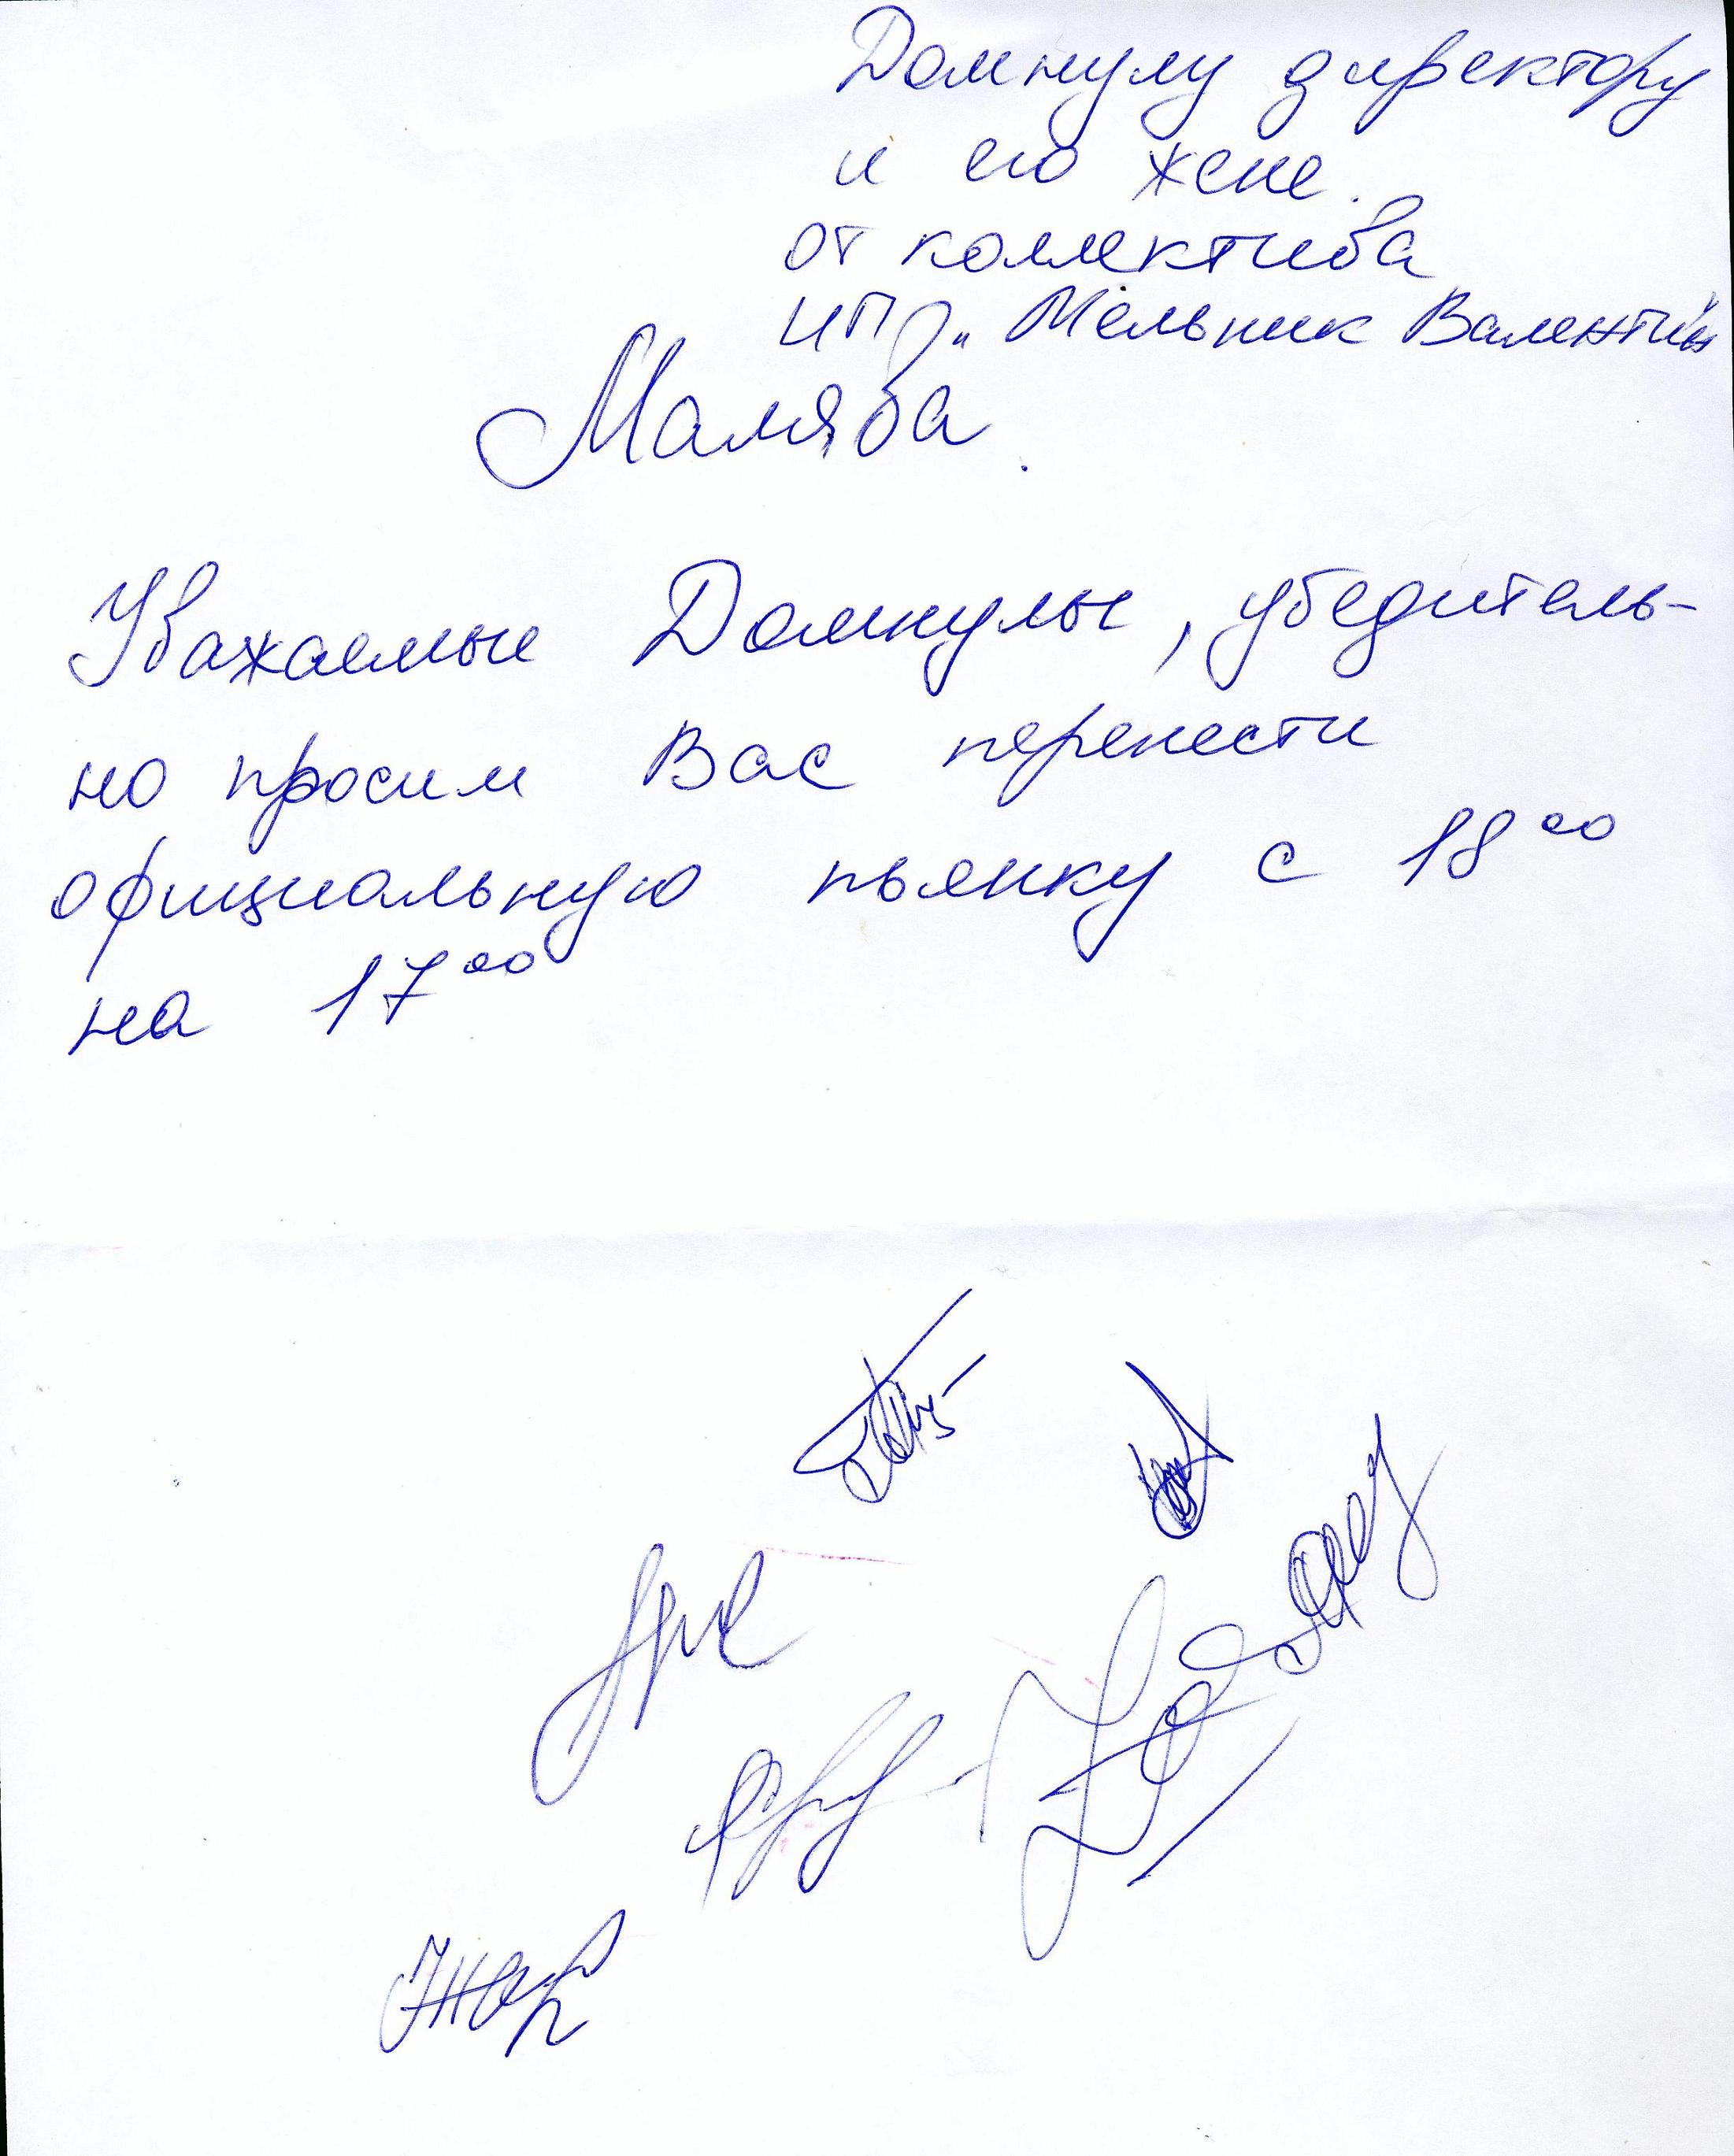 Домнулу директору
и его жене.
от коллектива
ИП „Мельник Валентин"
Малява.
Уважаемые Домнулы, убедитель-
но просим Вас перенести
официальную пьянку с 18⁰⁰
на 17⁰⁰